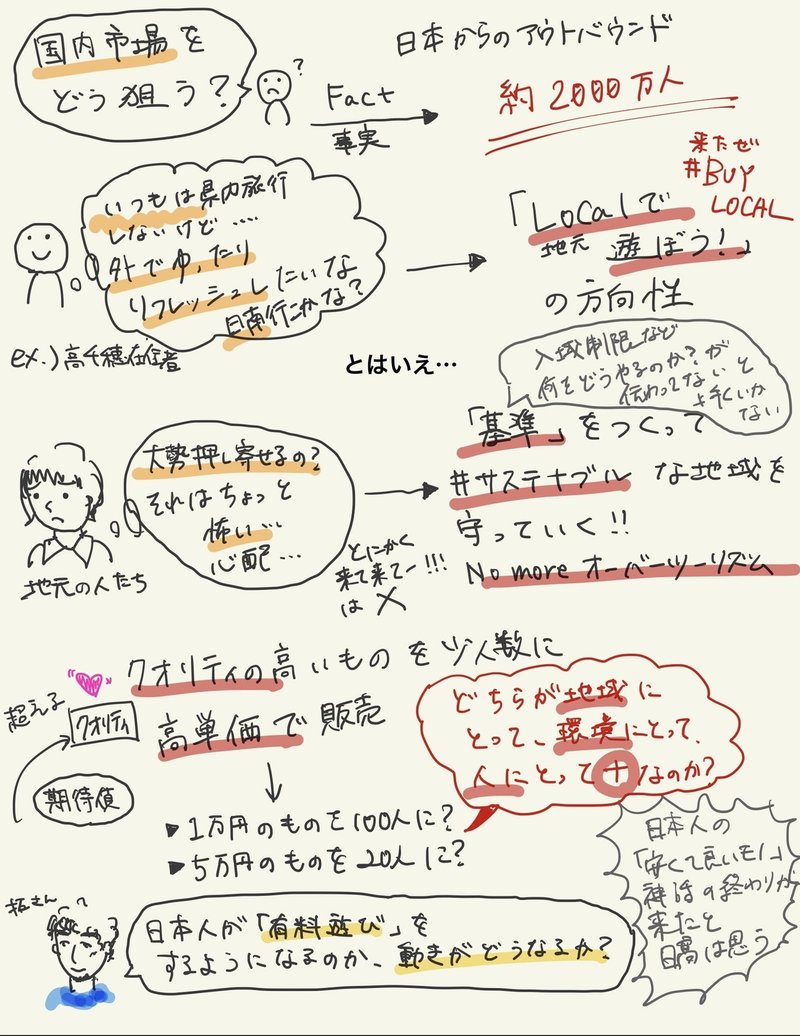 国内市場を
どう狙う?
?
Fact
事実
日本からのアウトバウンド
約2000万人
来たぜ
#BUY
LOCAL
いつもは県内旅行
しないけど……
外でゆったり
リフレッシュしたいな
日南行こかな?
ex.)高千穂在住者
「Localで
地元 遊ぼう!」
の方向性
とはいえ…
入域制限など
何をどうやるのか?が
伝わってないと
上手くいか
ない
大勢押し寄せるの?
それはちょっと
怖い…
心配…
地元の人たち
とにかく
来て来てー!!!
は×
「基準」をつくって
#サステナブル な地域を
守っていく!!
No more オーバーツーリズム
クオリティの高いものを少人数に
高単価で販売
超える
クオリティ
期待値
▶1万円のものを100人に?
▶5万円のものを20人に?
どちらが地域に
とって、環境にとって、
人にとって+なのか?
日本人の
「安くて良いモノ」
神話の終わりが
来たと
は思う
さん
日本人が「有料遊び」を
するようになるのか、動きがどうなるか?